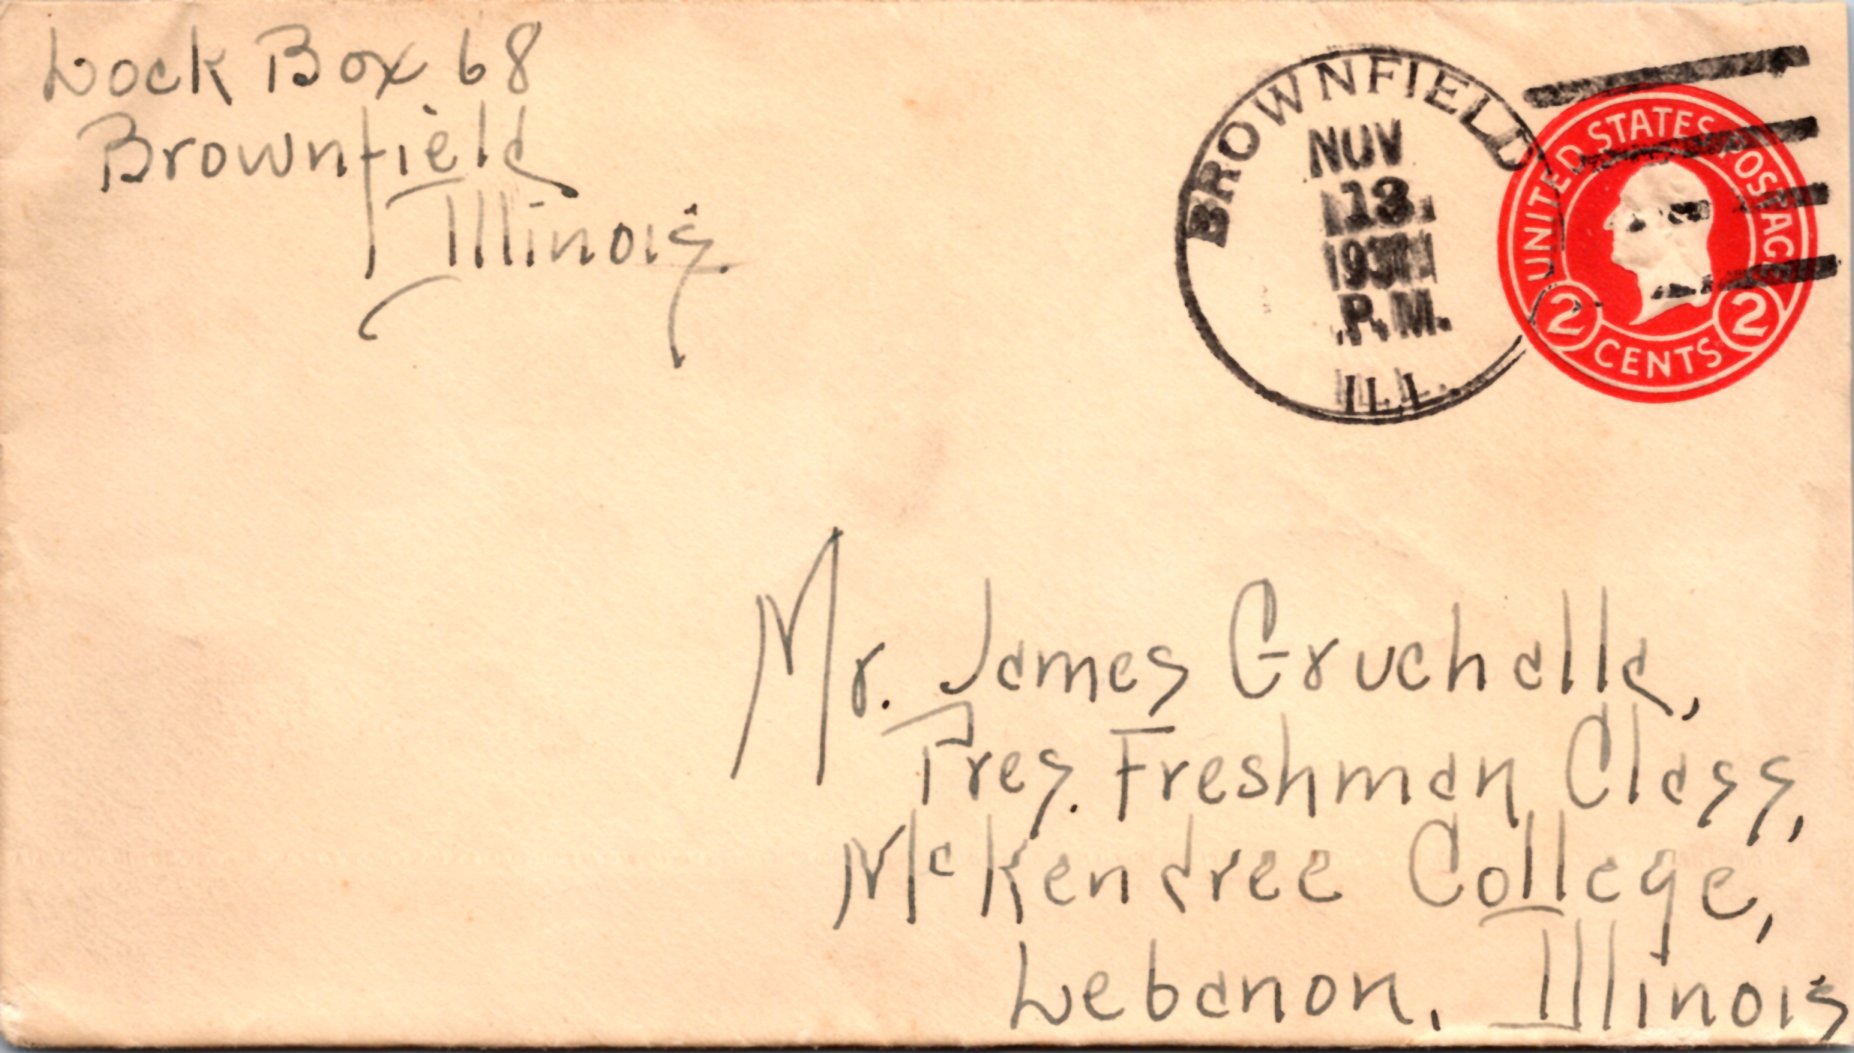 Lock Box 68
Brownfield
Illinois.
BROWNFIELD
NOV
13
P.M.
ILL.
UNITED STATES POSTAGE
2 CENTS 2
Mr. James Gruchalla,
Pres. Freshman Class,
McKendree College,
Lebanon, Illinois